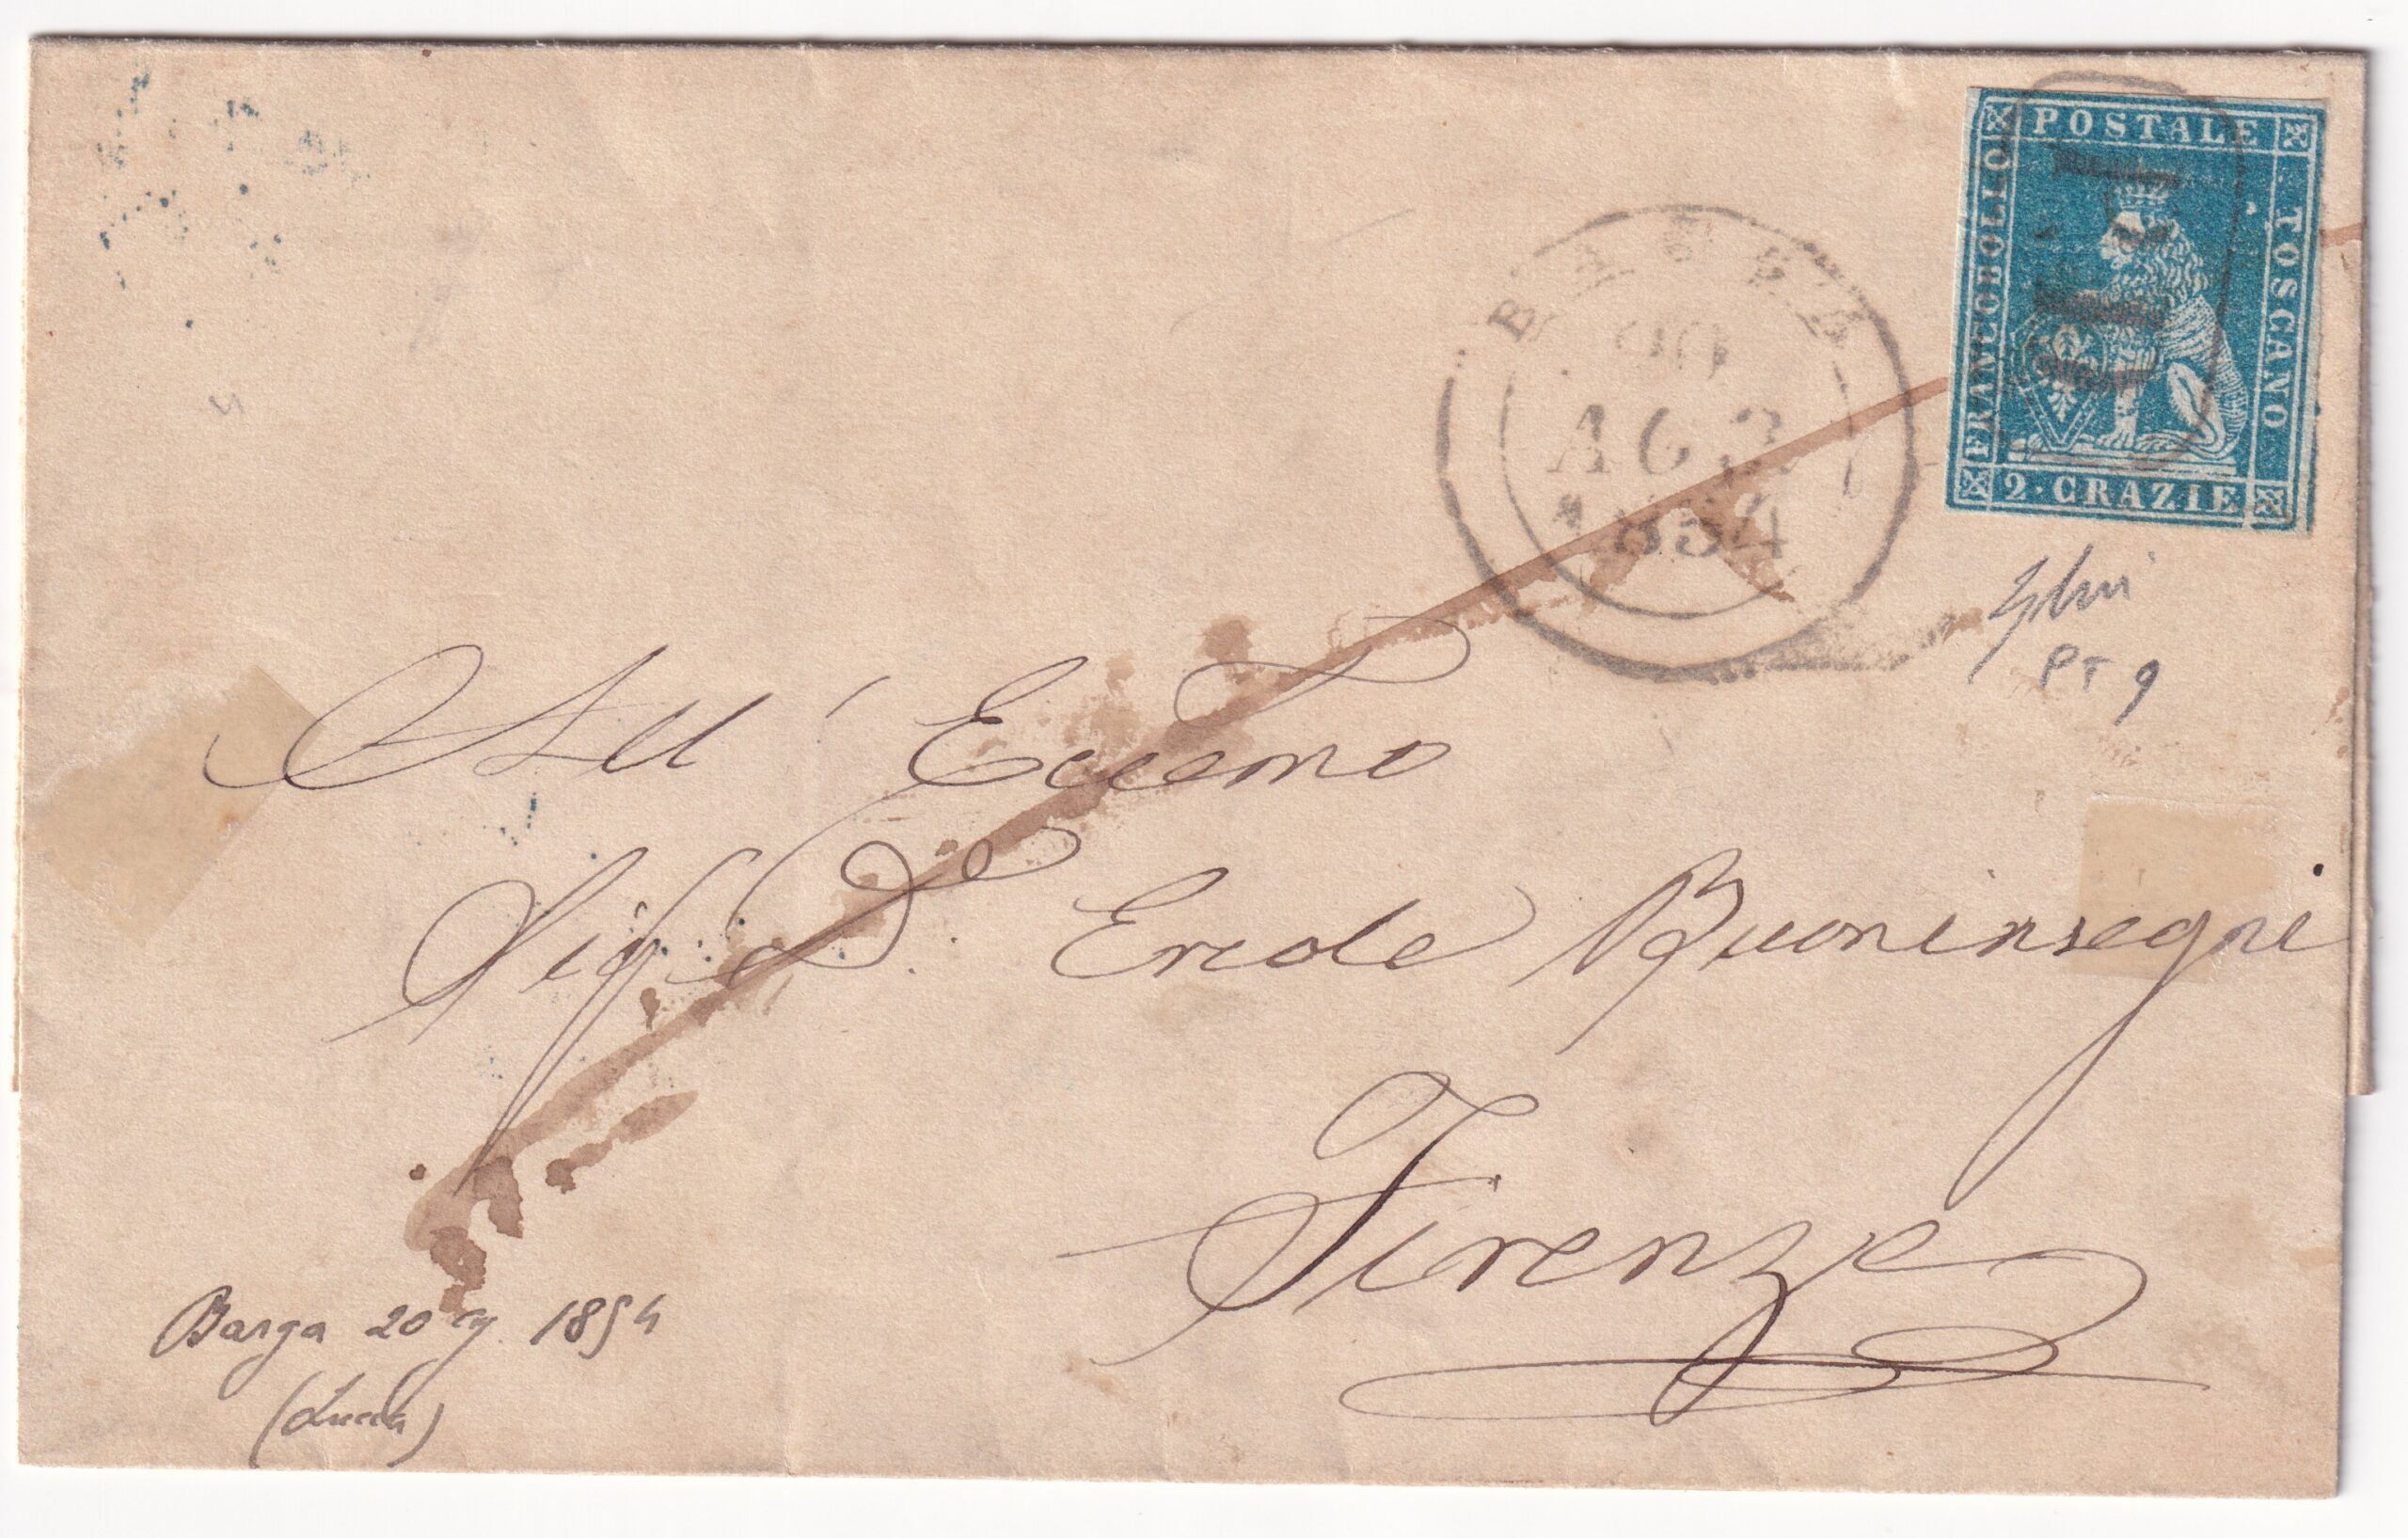 POSTALE
FRANCOBOLLO
TOSCANO
2 · CRAZIE
BARGA
20
AGO
1854
PD
PT 9
All' Eccemo
Sig. D. Ercole Buoninsegni
Firenze
Barga 20 ag. 1854
(Lucca)